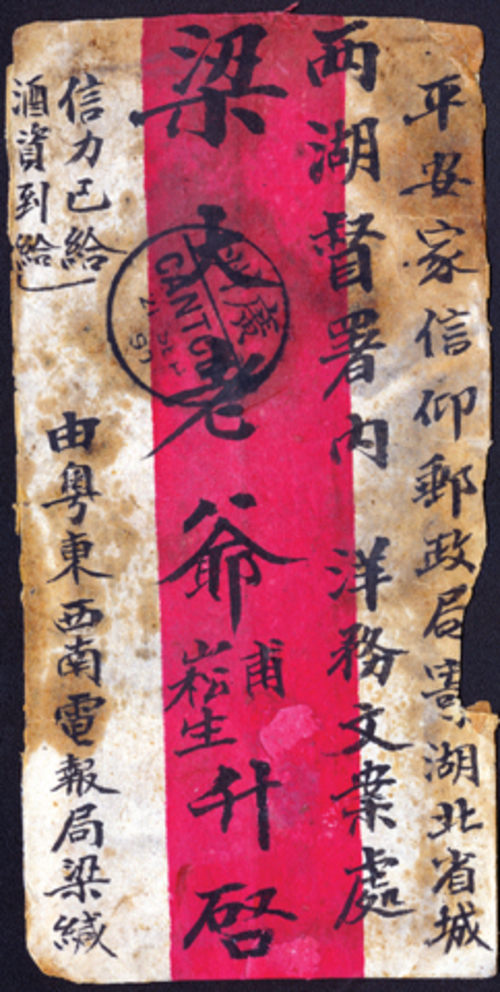 平安家信仰郵政局寄湖北省城
両湖督署內 洋務文案處
梁大老爺甫崧生升啓
信力已給
酒資到給
由粵東西南電報局梁緘
廣州
CANTON
DEC